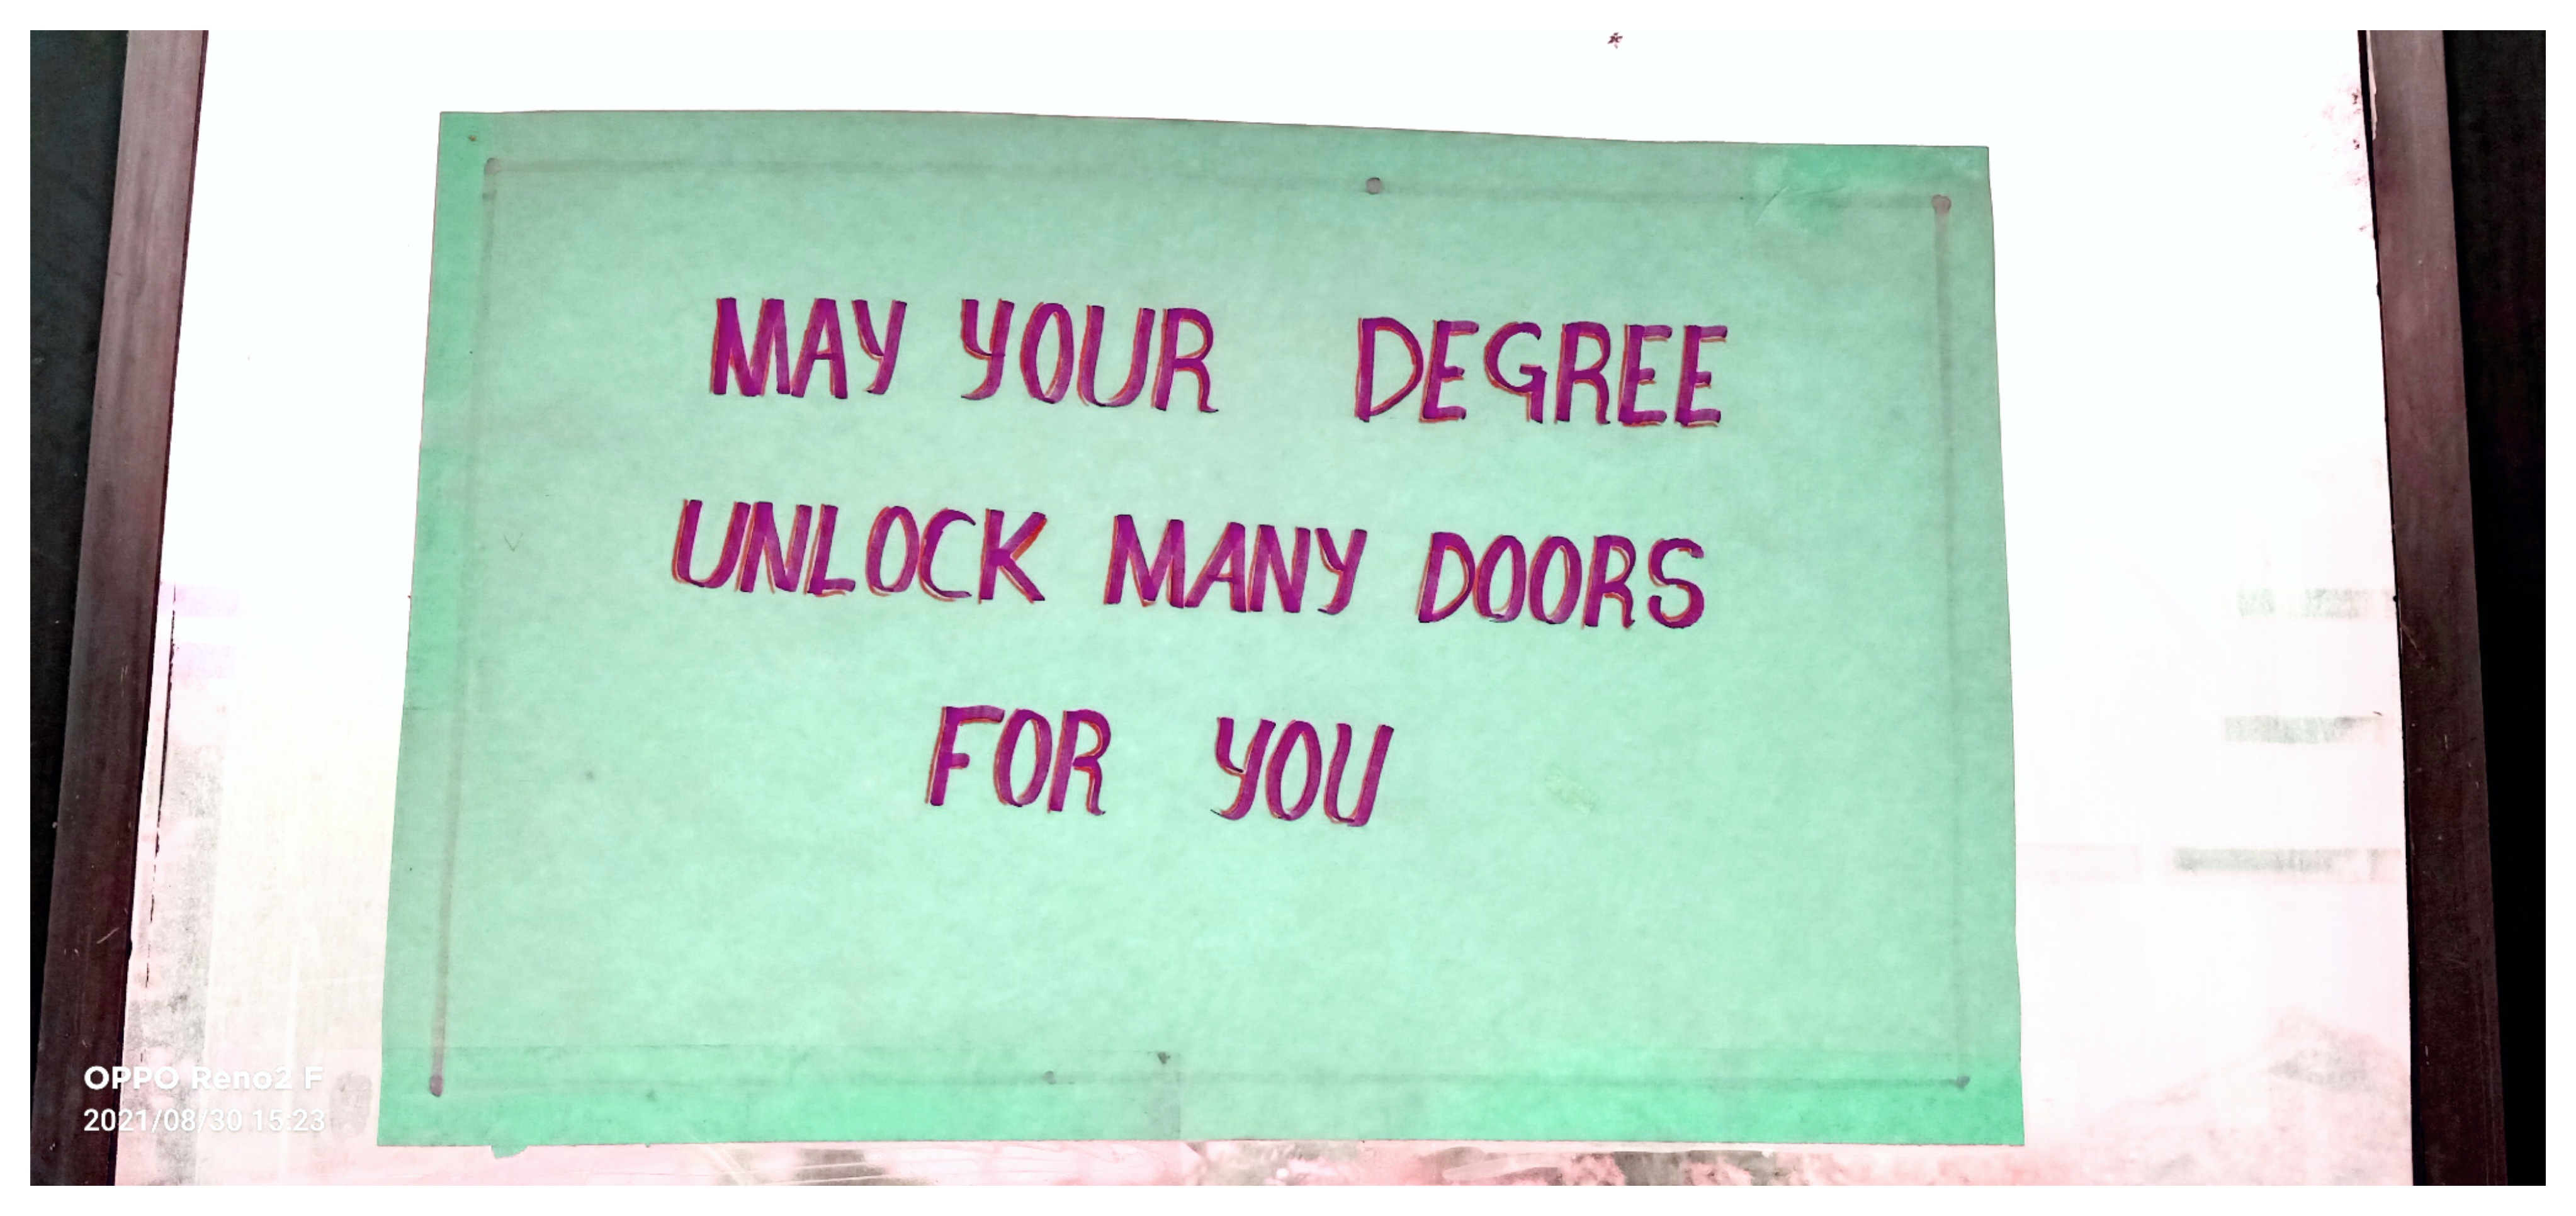 MAY YOUR DEGREE
UNLOCK MANY DOORS
FOR YOU
OPPO Reno2 F
2021/08/30 15:23